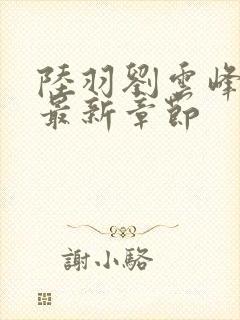 陸羽劉雲峰
最新章節
謝小駱